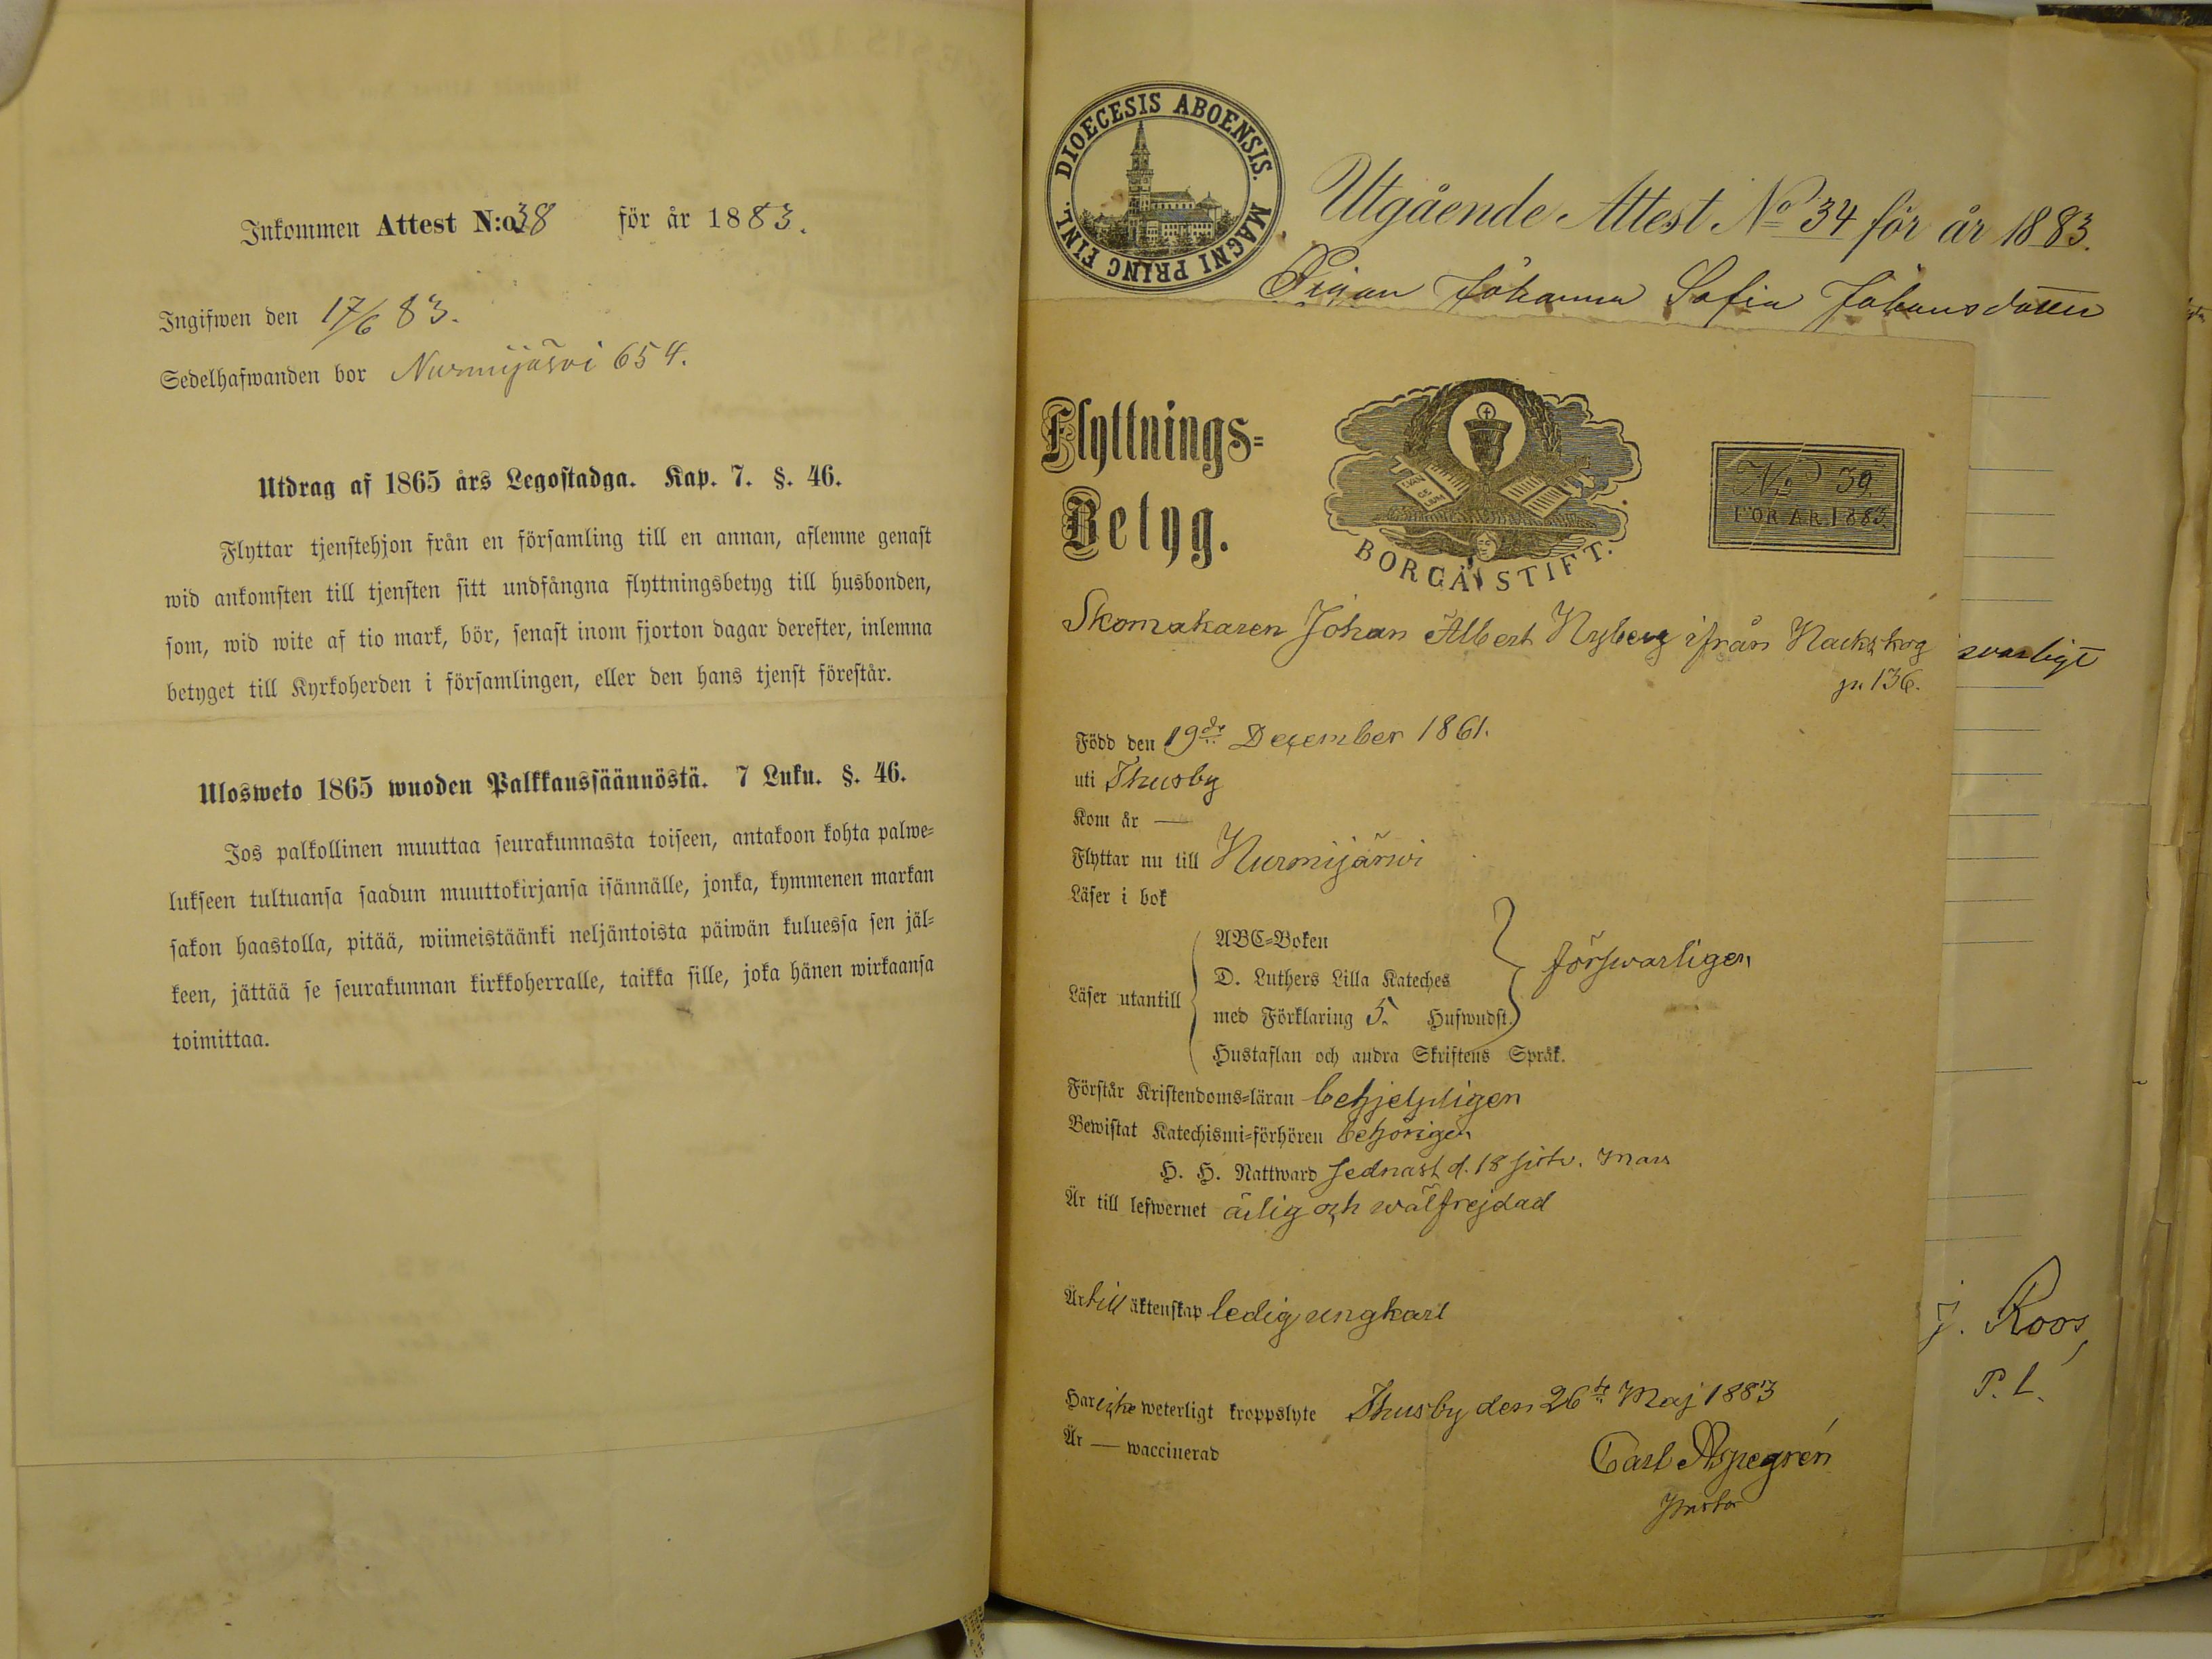 Inkommen Attest N:o 38 för år 1883.
Ingifwen den 17/6 83.
Sedelhafwanden bor Nurmijärvi 654.
Utdrag af 1865 års Legostadga. Kap. 7. §. 46.
Flyttar tjenstehjon från en församling till en annan, aflemne genast
wid ankomsten till tjensten sitt undfångna flyttningsbetyg till husbonden,
som, wid wite af tio mark, bör, senast inom fjorton dagar derefter, inlemna
betyget till Kyrkoherden i församlingen, eller den hans tjenst förestår.
Ulosweto 1865 wuoden Palkkaussäännöstä. 7 Luku. §. 46.
Jos palkollinen muuttaa seurakunnasta toiseen, antakoon kohta palwe-
lukseen tultuansa saadun muuttokirjansa isännälle, jonka, kymmenen markan
sakon haastolla, pitää, wiimeistäänki neljäntoista päiwän kuluessa sen jäl-
keen, jättää se seurakunnan kirkkoherralle, taikka sille, joka hänen wirkaansa
toimittaa.
DIOECESIS ABOENSIS. MAGNI PRINC FINL.
Utgående Attest No 34 för år 1883.
Pigan Johanna Sofia Johansdotter
Flyttnings-
Betyg.
EVAN
GE
LIUM
BORGÅ STIFT.
No 39.
FÖR ÅR 1883.
Skomakaren Johan Albert Nyberg ifrån Nackskog
p. 136.
svarligt
Född den 19de December 1861.
uti Thusby
Kom år —
Flyttar nu till Nurmijärwi
Läser i bok
Läser utantill
ABC-Boken
D. Luthers Lilla Kateches
med Förklaring 5. Hufwudst.
Hustaflan och andra Skriftens Språk.
förswarligen
Förstår Kristendoms-läran behjelpligen
Bewistat Katechismi-förhören behörigen
H. H. Nattward sednast d. 18 sistv. Mars
Är till lefwernet ärlig och wälfrejdad
Är till äktenskap ledig ungkarl
Har icke weterligt kroppslyte Thusby den 26te Maj 1883
Är — waccinerad
Carl Aspegrén
Pastor
J. Roos
P. l.